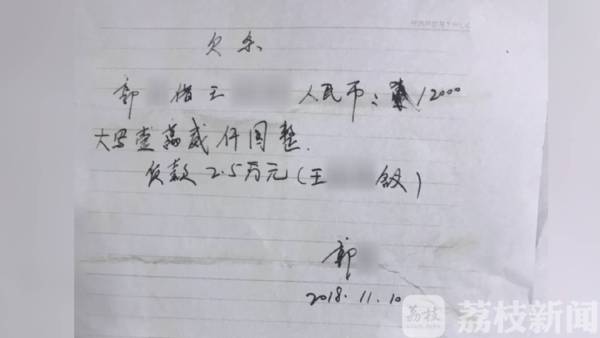 欠条
郭 借王 人民币: 12000
大写壹萬贰仟圆整.
货款2.5万元(王 钗)
郭
2018.11.10
荔枝
荔枝新闻